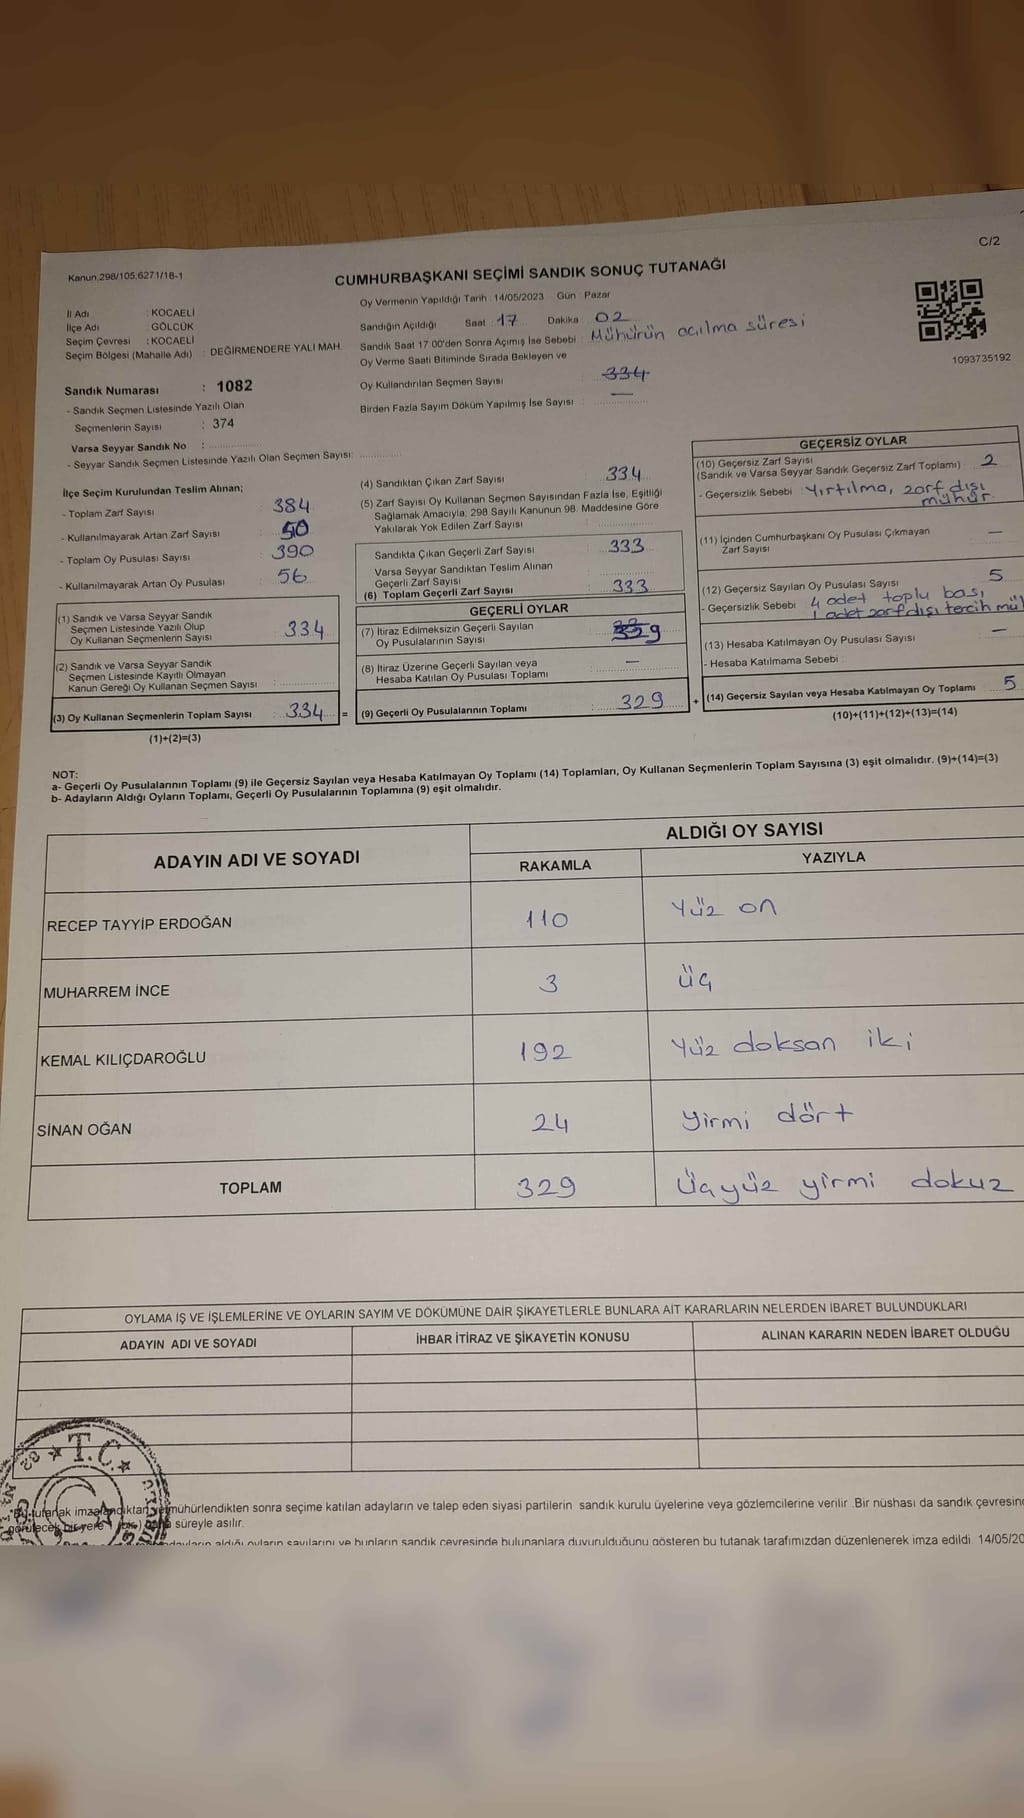 C/2
Kanun.298/105,6271/16-1
CUMHURBAŞKANI SEÇİMİ SANDIK SONUÇ TUTANAĞI
İl Adı : KOCAELİ
İlçe Adı : GÖLCÜK
Seçim Çevresi : KOCAELİ
Seçim Bölgesi (Mahalle Adı) : DEĞİRMENDERE YALI MAH.
Oy Vermenin Yapıldığı Tarih : 14/05/2023 Gün : Pazar
Sandığın Açıldığı Saat : 17 Dakika 02
Sandık Saat 17:00'den Sonra Açımış İse Sebebi : Mühürün açılma süresi
Oy Verme Saati Bitiminde Sırada Bekleyen ve
Oy Kullandırılan Seçmen Sayısı : 334
Birden Fazla Sayım Döküm Yapılmış İse Sayısı : —
1093735192
Sandık Numarası : 1082
- Sandık Seçmen Listesinde Yazılı Olan
Seçmenlerin Sayısı : 374
Varsa Seyyar Sandık No :
- Seyyar Sandık Seçmen Listesinde Yazılı Olan Seçmen Sayısı:
İlçe Seçim Kurulundan Teslim Alınan;
- Toplam Zarf Sayısı : 384
- Kullanılmayarak Artan Zarf Sayısı : 50
- Toplam Oy Pusulası Sayısı : 390
- Kullanılmayarak Artan Oy Pusulası : 56
(1) Sandık ve Varsa Seyyar Sandık
Seçmen Listesinde Yazılı Olup
Oy Kullanan Seçmenlerin Sayısı : 334
(2) Sandık ve Varsa Seyyar Sandık
Seçmen Listesinde Kayıtlı Olmayan
Kanun Gereği Oy Kullanan Seçmen Sayısı :
(3) Oy Kullanan Seçmenlerin Toplam Sayısı : 334 =
(1)+(2)=(3)
(4) Sandıktan Çıkan Zarf Sayısı : 334
(5) Zarf Sayısı Oy Kullanan Seçmen Sayısından Fazla İse, Eşitliği
Sağlamak Amacıyla, 298 Sayılı Kanunun 98. Maddesine Göre
Yakılarak Yok Edilen Zarf Sayısı
Sandıkta Çıkan Geçerli Zarf Sayısı : 333
Varsa Seyyar Sandıktan Teslim Alınan
Geçerli Zarf Sayısı
(6) Toplam Geçerli Zarf Sayısı : 333
GEÇERLİ OYLAR
(7) İtiraz Edilmeksizin Geçerli Sayılan
Oy Pusulalarının Sayısı : 329
(8) İtiraz Üzerine Geçerli Sayılan veya
Hesaba Katılan Oy Pusulası Toplamı : —
(9) Geçerli Oy Pusulalarının Toplamı : 329 +
GEÇERSİZ OYLAR
(10) Geçersiz Zarf Sayısı
(Sandık ve Varsa Seyyar Sandık Geçersiz Zarf Toplamı) 2
- Geçersizlik Sebebi : Yırtılma, zarf dışı
mühür.
(11) İçinden Cumhurbaşkanı Oy Pusulası Çıkmayan
Zarf Sayısı —
(12) Geçersiz Sayılan Oy Pusulası Sayısı : 5
- Geçersizlik Sebebi 4 adet toplu bası
1 adet zarf dışı tercih mü
(13) Hesaba Katılmayan Oy Pusulası Sayısı : —
- Hesaba Katılmama Sebebi :
(14) Geçersiz Sayılan veya Hesaba Katılmayan Oy Toplamı : 5
(10)+(11)+(12)+(13)=(14)
NOT:
a- Geçerli Oy Pusulalarının Toplamı (9) ile Geçersiz Sayılan veya Hesaba Katılmayan Oy Toplamı (14) Toplamları, Oy Kullanan Seçmenlerin Toplam Sayısına (3) eşit olmalıdır. (9)+(14)=(3)
b- Adayların Aldığı Oyların Toplamı, Geçerli Oy Pusulalarının Toplamına (9) eşit olmalıdır.
ADAYIN ADI VE SOYADI
ALDIĞI OY SAYISI
RAKAMLA YAZIYLA
RECEP TAYYİP ERDOĞAN 110 Yüz on
MUHARREM İNCE 3 üç
KEMAL KILIÇDAROĞLU 192 Yüz doksan iki
SİNAN OĞAN 24 Yirmi dört
TOPLAM 329 Üçyüz yirmi dokuz
OYLAMA İŞ VE İŞLEMLERİNE VE OYLARIN SAYIM VE DÖKÜMÜNE DAİR ŞİKAYETLERLE BUNLARA AİT KARARLARIN NELERDEN İBARET BULUNDUKLARI
ADAYIN ADI VE SOYADI İHBAR İTİRAZ VE ŞİKAYETİN KONUSU ALINAN KARARIN NEDEN İBARET OLDUĞU
T.C.
Bu tutanak imzalandıktan ve mühürlendikten sonra seçime katılan adayların ve talep eden siyasi partilerin sandık kurulu üyelerine veya gözlemcilerine verilir .Bir nüshası da sandık çevresin
görülecek bir yere süreyle asılır.
adayların aldığı oyların sayılarını ve bunların sandık çevresinde bulunanlara duyurulduğunu gösteren bu tutanak tarafımızdan düzenlenerek imza edildi. 14/05/20